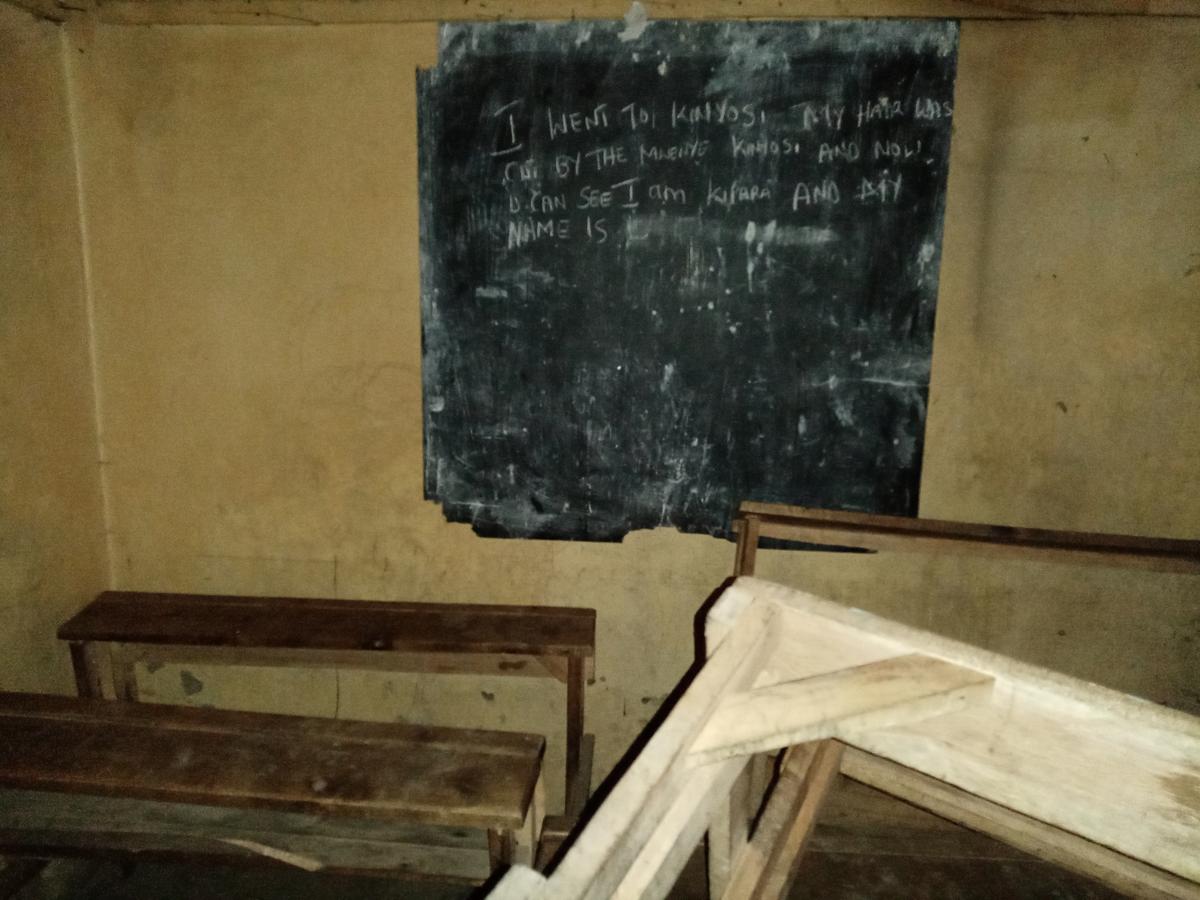 I WENT TO KINYOSI MY HAIR WAS
CUT BY THE MWENYE KINYOSI AND NOW
U CAN SEE I am KIPARA AND MY
NAME IS